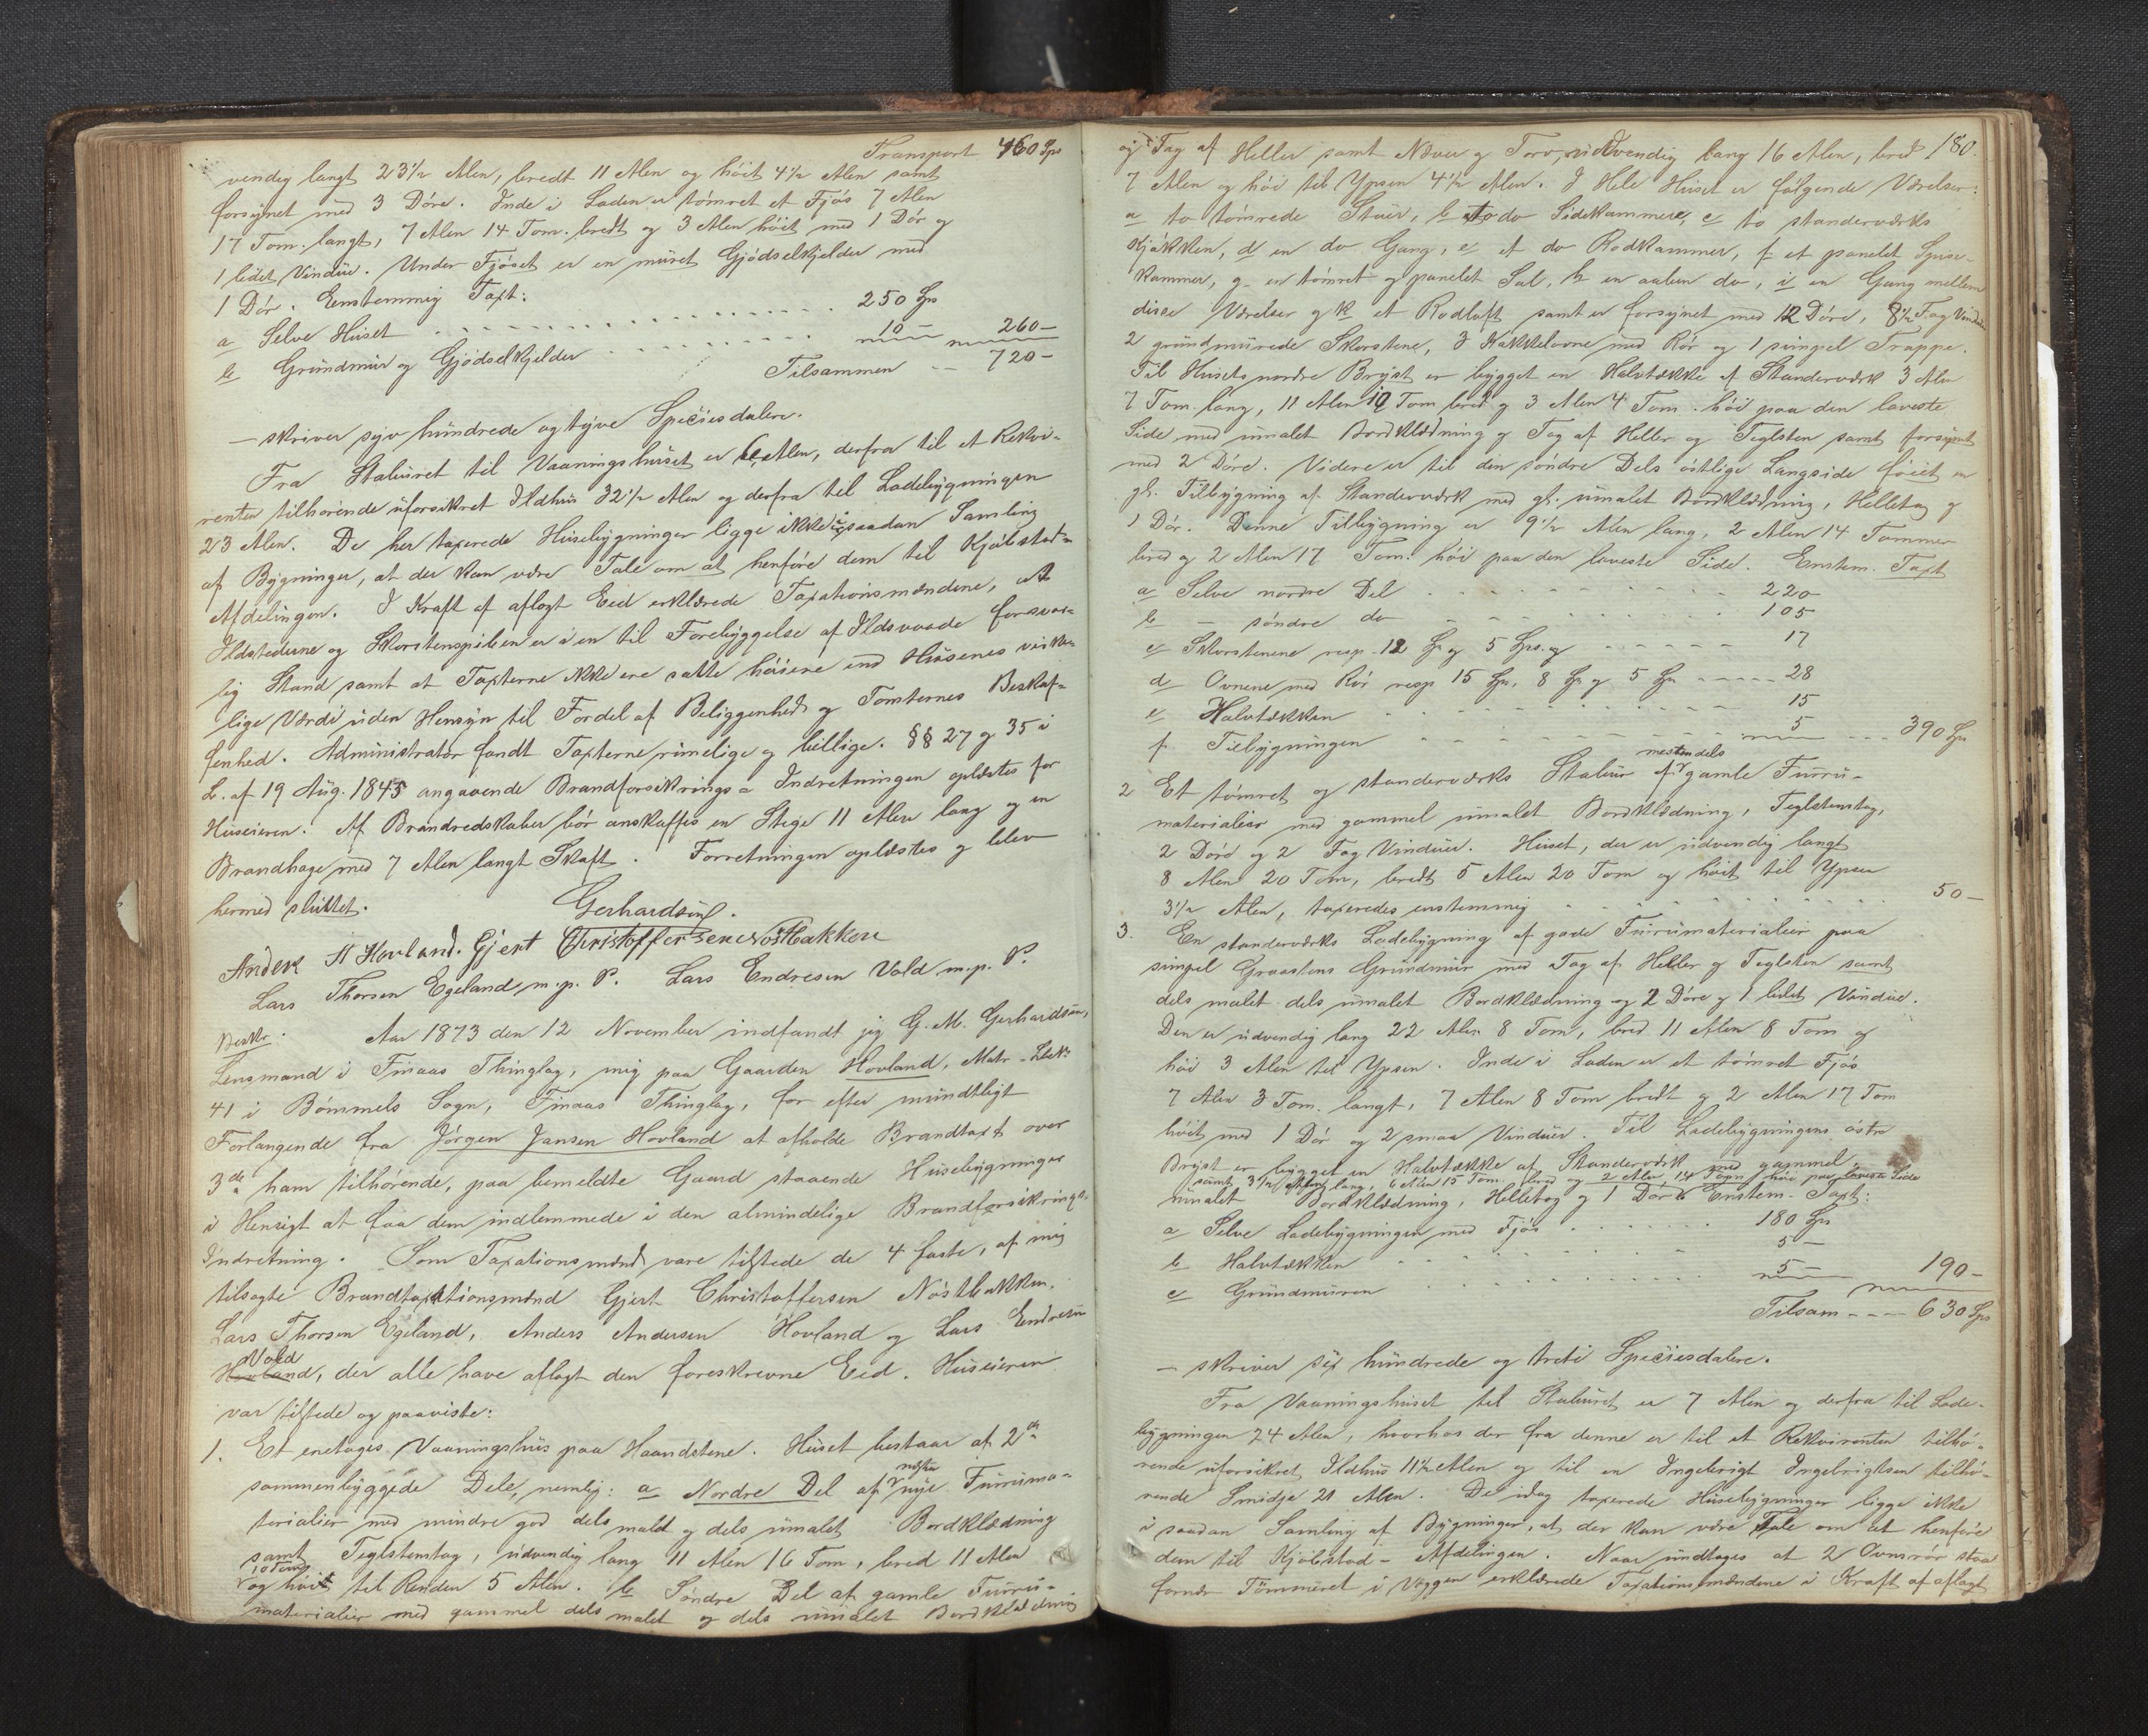 Transport 460 Spd
vendig langt 23 1/2 Alen, bredt 11 Alen og høit 4 1/2 Alen samt
forsynet med 3 Døre. Inde i Laden er tømret et Fjøs 7 Alen
17 Tom. langt, 7 Alen 14 Tom. bredt og 3 Alen høit med 1 Dør og
1 lidet Vindue. Under Fjøset er en muret Gjødselkjelder med
1 Dør. Eenstemmig Taxt:
a Selve Huset 250 Spd
b Grundmur og Gjødselkjelder 10 – 260 –
Tilsammen 720 –
– skriver syv hundrede og tyve Speciesdalere.
Fra Staburet til Vaaningshuset er Alen, derfra til et Rekvi-
renten tilhørende uforsikret Ildhus 32 1/2 Alen og derfra til Ladebygningen
23 Alen. De her taxerede Husebygninger ligge ikke i saadan Samling
af Bygninger, at der kan være Tale om at henføre dem til Kjøbstad-
Afdelingen. I Kraft af aflagt Eed erklærede Taxationsmændene, at
Ildstederne og Skorstenspiben er i en til Forebyggelse af Ildsvaade forsvar-
lig Stand samt at Taxterne ikke ere satte høiere end Husenes virke-
lige Værdi uden Hensyn til Fordel af Beliggenhed og Tomternes Beskaf-
fenhed. Administrator fandt Taxterne rimelige og billige. §§ 27 og 35 i
L. af 19 Aug. 1845 angaaende Brandforsikrings-Indretningen oplæstes for
Huseieren. Af Brandredskaber bør anskaffes en Stige 11 Alen lang og en
Brandhage med 7 Alen langt Skaft. Forretningen oplæstes og blev
hermed sluttet.
Gerhardsen.
Anders A Hovland. Gjert Christoffersen Nøstbakken
Lars Thorsen Egeland, m. p. P. Lars Endresen Vold m. p. P.
Beskr. Aar 1873 den 12 November indfandt jeg G. M. Gerhardsen,
Lensmand i Finaas Thinglag, mig paa Gaarden Hovland, Matr-Løbn:
41 i Bømmels Sogn, Finaas Thinglag, for efter mundtligt
Forlangende fra Jørgen Jansen Hovland at afholde Brandtaxt over
3de ham tilhørende, paa bemeldte Gaard staaende Husebygninger
i Hensigt at faa dem indlemmede i den almindelige Brandforsikrings-
Indretning. Som Taxationsmænd vare tilstede de 4 faste, af mig
tilsagte Brandtaxationsmænd Gjert Christoffersen Nøstbakken,
Lars Thorsen Egeland, Anders Andersen Hovland og Lars Endresen
Vold
Hovland, der alle have aflagt den foreskrevne Eed. Huseieren
var tilstede og paaviste:
1. Et enetages Vaaningshus paa Haandstene. Huset bestaar af 2de
næsten
sammenbyggede Dele, nemlig: a Nordre Del af nye Furuma-
terialier med mindre god dels malet og dels umalet Bordklædning
samt Teglstenstag, udvendig lang 11 Alen 16 Tom, bred 11 Alen
10 Tom
og høit til Renden 5 Alen. b Søndre Del af gamle Furru-
materialier med gammel dels malet og dels umalet Bordklædning
180.
og Tag af Heller samt Næver og Torv, udvendig lang 16 Alen, bred
7 Alen og høi til Ypsen 4 1/2 Alen. I Hele Huset er følgende Værelser:
a to tømrede Stuer, b to do Sidekammere, c to standerværks
Kjøkken, d en do Gang, e et do Rodkammer, f et panelet Spise-
kammer, g en tømret og panelet Sal, h en aaben do, i en Gang mellem
disse Værelser og k et Rodloft samt er forsynet med 12 Døre, 8 1/2 Fag Vinduer
2 grundmurede Skorstene, 3 Kakkelovne med Rør og 1 simpel Trappe.
Til Husets nordre Bryst er bygget en Halvtække af Standerværk 3 Alen
7 Tom. lang, 11 Alen 10 Tom bred og 3 Alen 4 Tom. høi paa den laveste
Side med umalet Bordklædning og Tag af Heller og Teglsten samt forsynt
med 2 Døre. Videre er til den søndre Dels østlige Langside føiet en
gl. Tilbygning af Standerværk med gl. umalet Bordklædning, Helletag og
1 Dør. Denne Tilbygning er 9 1/2 Alen lang, 2 Alen 14 Tommer
bred og 2 Alen 17 Tom. høi paa den laveste Side. Enstem. Taxt
a Selve nordre Del 220
b – søndre do 105
c Skorstenene resp. 12 Spd og 5 Spd og 17
d Ovnene med Rør resp 15 Spd, 8 Spd og 5 Spd 28
e Halvtækken 15
f. Tilbygningen 5 390 Spd
mestendels
2 Et tømret og standerværks Stabur af gamle Furru-
materialier med gammel umalet Bordklædning, Teglstenstag,
2 Døre og 2 Fag Vinduer. Huset, der er udvendig langt
8 Alen 20 Tom, bredt 5 Alen 20 Tom og høit til Ypsen
3 1/2 Alen, taxeredes enstemmig 50 –
3. En standerværks Ladebygning af gode Furumaterialier paa
simpel Graastens Grundmur med Tag af Heller og Teglsten samt
dels malet dels umalet Bordklædning og 2 Døre og 1 lidet Vindue.
Den er udvendig lang 22 Alen 8 Tom, bred 11 Alen 8 Tom og
høi 3 Alen til Ypsen. Inde i Laden er et tømret Fjøs
7 Alen 3 Tom. langt, 7 Alen 8 Tom bredt og 2 Alen 17 Tom
høit med 1 Dør og 2 smaa Vinduer. Til Ladebygningens østre
Bryst er bygget en Halvtække af Standerværk med gammel
samt 3 1/2 Alen lang, 6 Alen 15 Tom. bred og 2 Alen 14 Tom høi paa laveste Side
umalet Bordklædning, Helletag og 1 Dør Enstem. Taxt:
a Selve Ladebygningen med Fjøs 180 Spd
b Halvtækken 5 –
c Grundmuren 5 – 190 –
Tilsam 630 Spd
– skriver sex hundrede og treti Speciesdalere.
Fra Vaaningshuset til Staburet er 7 Alen og derfra til Lade-
bygningen 24 Alen, hvorhos der fra denne er til et Rekvirenten tilhø-
rende uforsikret Ildhus 11 1/2 Alen og til en Ingebrigt Ingebrigtsen tilhø-
rende Smidje 21 Alen. De idag taxerede Husebygninger ligge ikke
i saadan Samling af Bygninger, at der kan være Tale om at henføre
dem til Kjøbstad-Afdelingen. Naar undtages at 2 Ovnsrør staa
fornær Tømmeret i Væggen erklærede Taxationsmændene i Kraft af aflagt